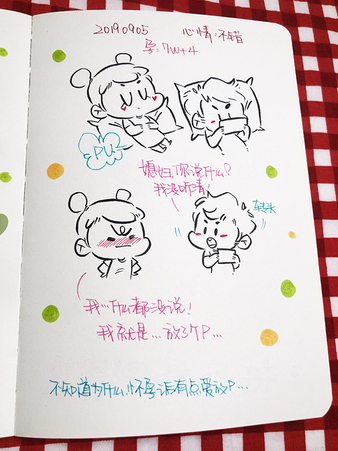 20190905 心情:不错
孕:7W+4
PU~
媳妇,你说什么?
我没听清!
转头
我…什么都没说!
我就是…放了个P…
不知道为什么!怀孕后有点爱放P…